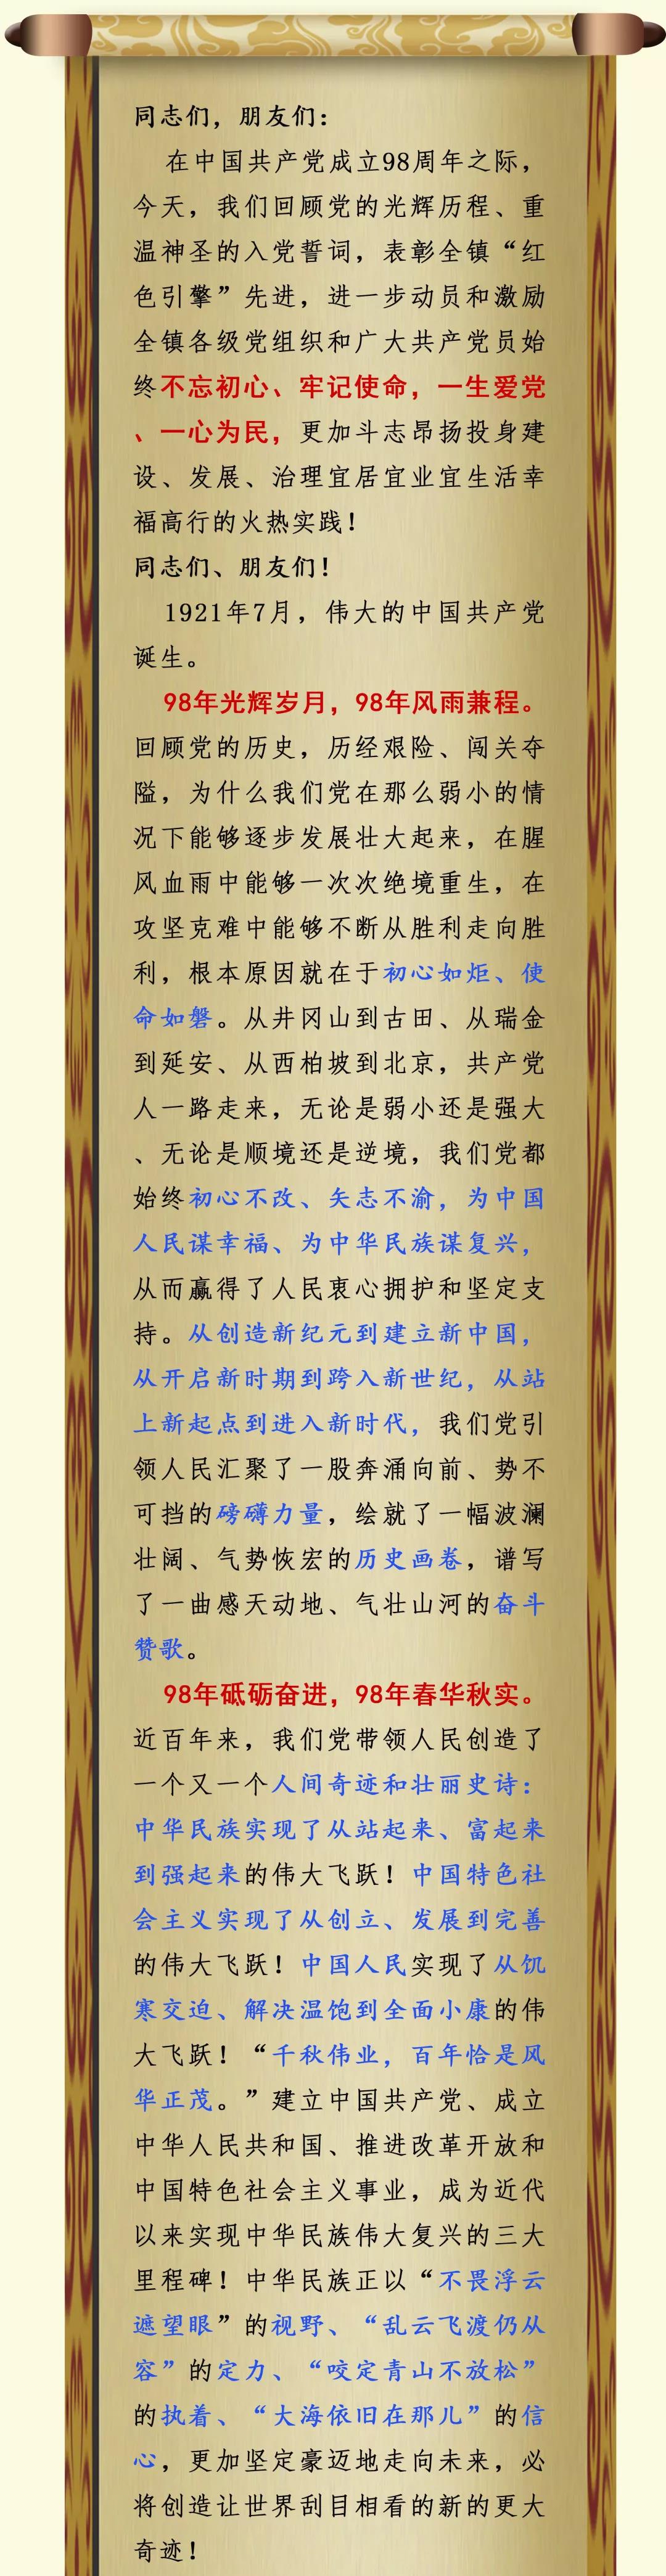 同志们，朋友们：
在中国共产党成立98周年之际，
今天，我们回顾党的光辉历程、重
温神圣的入党誓词，表彰全镇“红
色引擎”先进，进一步动员和激励
全镇各级党组织和广大共产党员始
终不忘初心、牢记使命，一生爱党
、一心为民，更加斗志昂扬投身建
设、发展、治理宜居宜业宜生活幸
福高行的火热实践！
同志们、朋友们！
1921年7月，伟大的中国共产党
诞生。
98年光辉岁月，98年风雨兼程。
回顾党的历史，历经艰险、闯关夺
隘，为什么我们党在那么弱小的情
况下能够逐步发展壮大起来，在腥
风血雨中能够一次次绝境重生，在
攻坚克难中能够不断从胜利走向胜
利，根本原因就在于初心如炬、使
命如磐。从井冈山到古田、从瑞金
到延安、从西柏坡到北京，共产党
人一路走来，无论是弱小还是强大
、无论是顺境还是逆境，我们党都
始终初心不改、矢志不渝，为中国
人民谋幸福、为中华民族谋复兴，
从而赢得了人民衷心拥护和坚定支
持。从创造新纪元到建立新中国，
从开启新时期到跨入新世纪，从站
上新起点到进入新时代，我们党引
领人民汇聚了一股奔涌向前、势不
可挡的磅礴力量，绘就了一幅波澜
壮阔、气势恢宏的历史画卷，谱写
了一曲感天动地、气壮山河的奋斗
赞歌。
98年砥砺奋进，98年春华秋实。
近百年来，我们党带领人民创造了
一个又一个人间奇迹和壮丽史诗：
中华民族实现了从站起来、富起来
到强起来的伟大飞跃！中国特色社
会主义实现了从创立、发展到完善
的伟大飞跃！中国人民实现了从饥
寒交迫、解决温饱到全面小康的伟
大飞跃！“千秋伟业，百年恰是风
华正茂。”建立中国共产党、成立
中华人民共和国、推进改革开放和
中国特色社会主义事业，成为近代
以来实现中华民族伟大复兴的三大
里程碑！中华民族正以“不畏浮云
遮望眼”的视野、“乱云飞渡仍从
容”的定力、“咬定青山不放松”
的执着、“大海依旧在那儿”的信
心，更加坚定豪迈地走向未来，必
将创造让世界刮目相看的新的更大
奇迹！